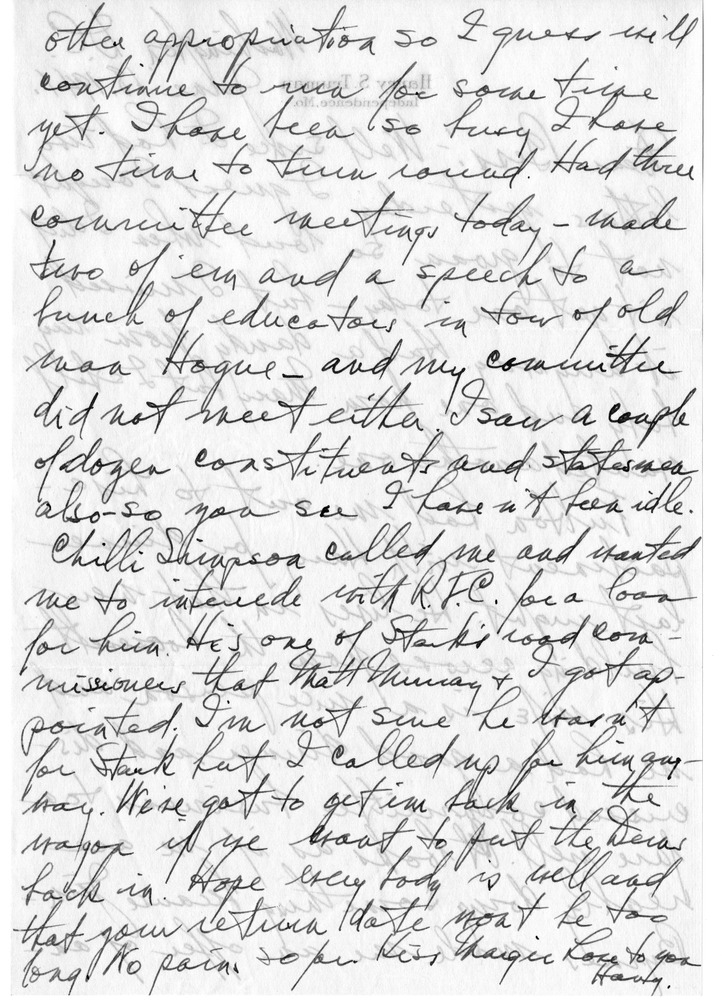 other appropriation so I guess will
continue to run for some time
yet. I have been so busy I have
no time to turn round. Had three
committee meetings today - made
two of 'em and a speech to a
bunch of educators in tow of old
man Hogue - and my committee
did not meet either. I saw a couple
of dozen constituents and statesmen
also - so you see I have n't been idle.
Chilli Simpson called me and wanted
me to intercede with R.F.C. for a loan
for him. He's one of Stark's road com-
missioners that Matt Murray & I got ap-
pointed. I'm not sure he wasn't
for Stark but I called up for him any-
way. We've got to get 'em back in the
wagon if we want to put the Dems
back in. Hope every body is well and
that your return date wont be too
long. No pain so far. Kiss Margie Love to you
Harry.
Harry S. Truman
Independence, Mo.